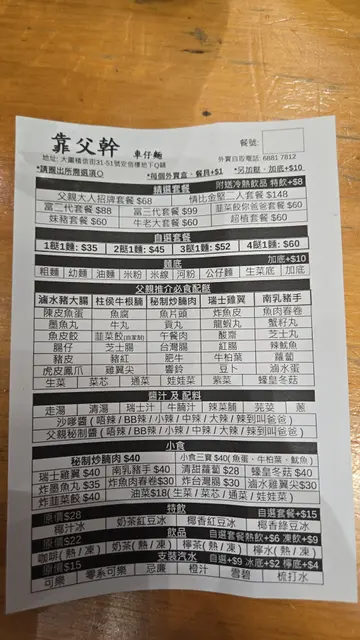 靠父幹 車仔麵 餐號:
地址: 大圍積信街31-51號安信樓地下Q鋪 外賣自取電話: 6881 7812
*請圈出所需選項○ *每個外賣盒、餐具+$1 *另加餸、加底+$10
精選套餐 附送冷熱飲品 特飲+$8
父親大人招牌套餐 $68 情比金堅二人套餐 $148
富二代套餐 $88 富三代套餐 $99 韮菜餃你爸爸套餐 $60
妹豬套餐 $60 牛老大套餐 $60 超植套餐 $60
自選套餐
1餸1麵: $35 2餸1麵: $45 3餸1麵: $52 4餸1麵: $60
麵底 加底+$10
粗麵 幼麵 油麵 米粉 米線 河粉 公仔麵 生菜底 加底
父親推介必食配餸
滷水豬大腸 柱侯牛根腩 秘制炒腩肉 瑞士雞翼 南乳豬手
陳皮魚蛋 魚腐 魚片頭 炸魚皮 魚肉春卷
墨魚丸 牛丸 貢丸 龍蝦丸 蟹籽丸
魚皮餃 韮菜餃(自家制) 午餐肉 酸齋 芝士丸
腸仔 芝士腸 台灣腸 紅腸 辣魷魚
豬皮 豬紅 肥牛 牛柏葉 蘿蔔
虎皮鳳爪 雞翼尖 響鈴 豆卜 滷水蛋
生菜 菜芯 通菜 娃娃菜 紫菜 蠔皇冬菇
醬汁 及 配料
走湯 清湯 瑞士汁 牛腩汁 辣菜脯 芫荽 蔥
沙嗲醬 ( 唔辣 / BB辣 / 小辣 / 中辣 / 大辣 / 辣到叫爸爸 )
父親秘制醬 ( 唔辣 / BB辣 / 小辣 / 中辣 / 大辣 / 辣到叫爸爸 )
小食
秘制炒腩肉 $40 小食三寶 $40( 魚蛋、牛柏葉、魷魚 )
瑞士雞翼 $40 南乳豬手 $40 清甜蘿蔔 $28 蠔皇冬菇 $40
炸墨魚丸 $35 炸魚肉春卷$30 炸台灣腸 $30 滷水雞翼尖$30
炸韮菜餃 $40 油菜$18( 生菜 / 菜芯 / 通菜 / 娃娃菜 )
原價$28 特飲 自選套餐+$15
椰汁冰 奶茶紅豆冰 椰香紅豆冰 椰香綠豆冰
原價$22 飲品 自選套餐熱飲+$6 凍飲+$9
咖啡( 熱 / 凍 ) 奶茶( 熱 / 凍 ) 檸茶( 熱 / 凍 ) 檸水( 熱 / 凍 )
原價$15 支裝汽水 自選+$9 冰底+$2 檸底+$4
可樂 零系可樂 忌廉 橙汁 雪碧 梳打水